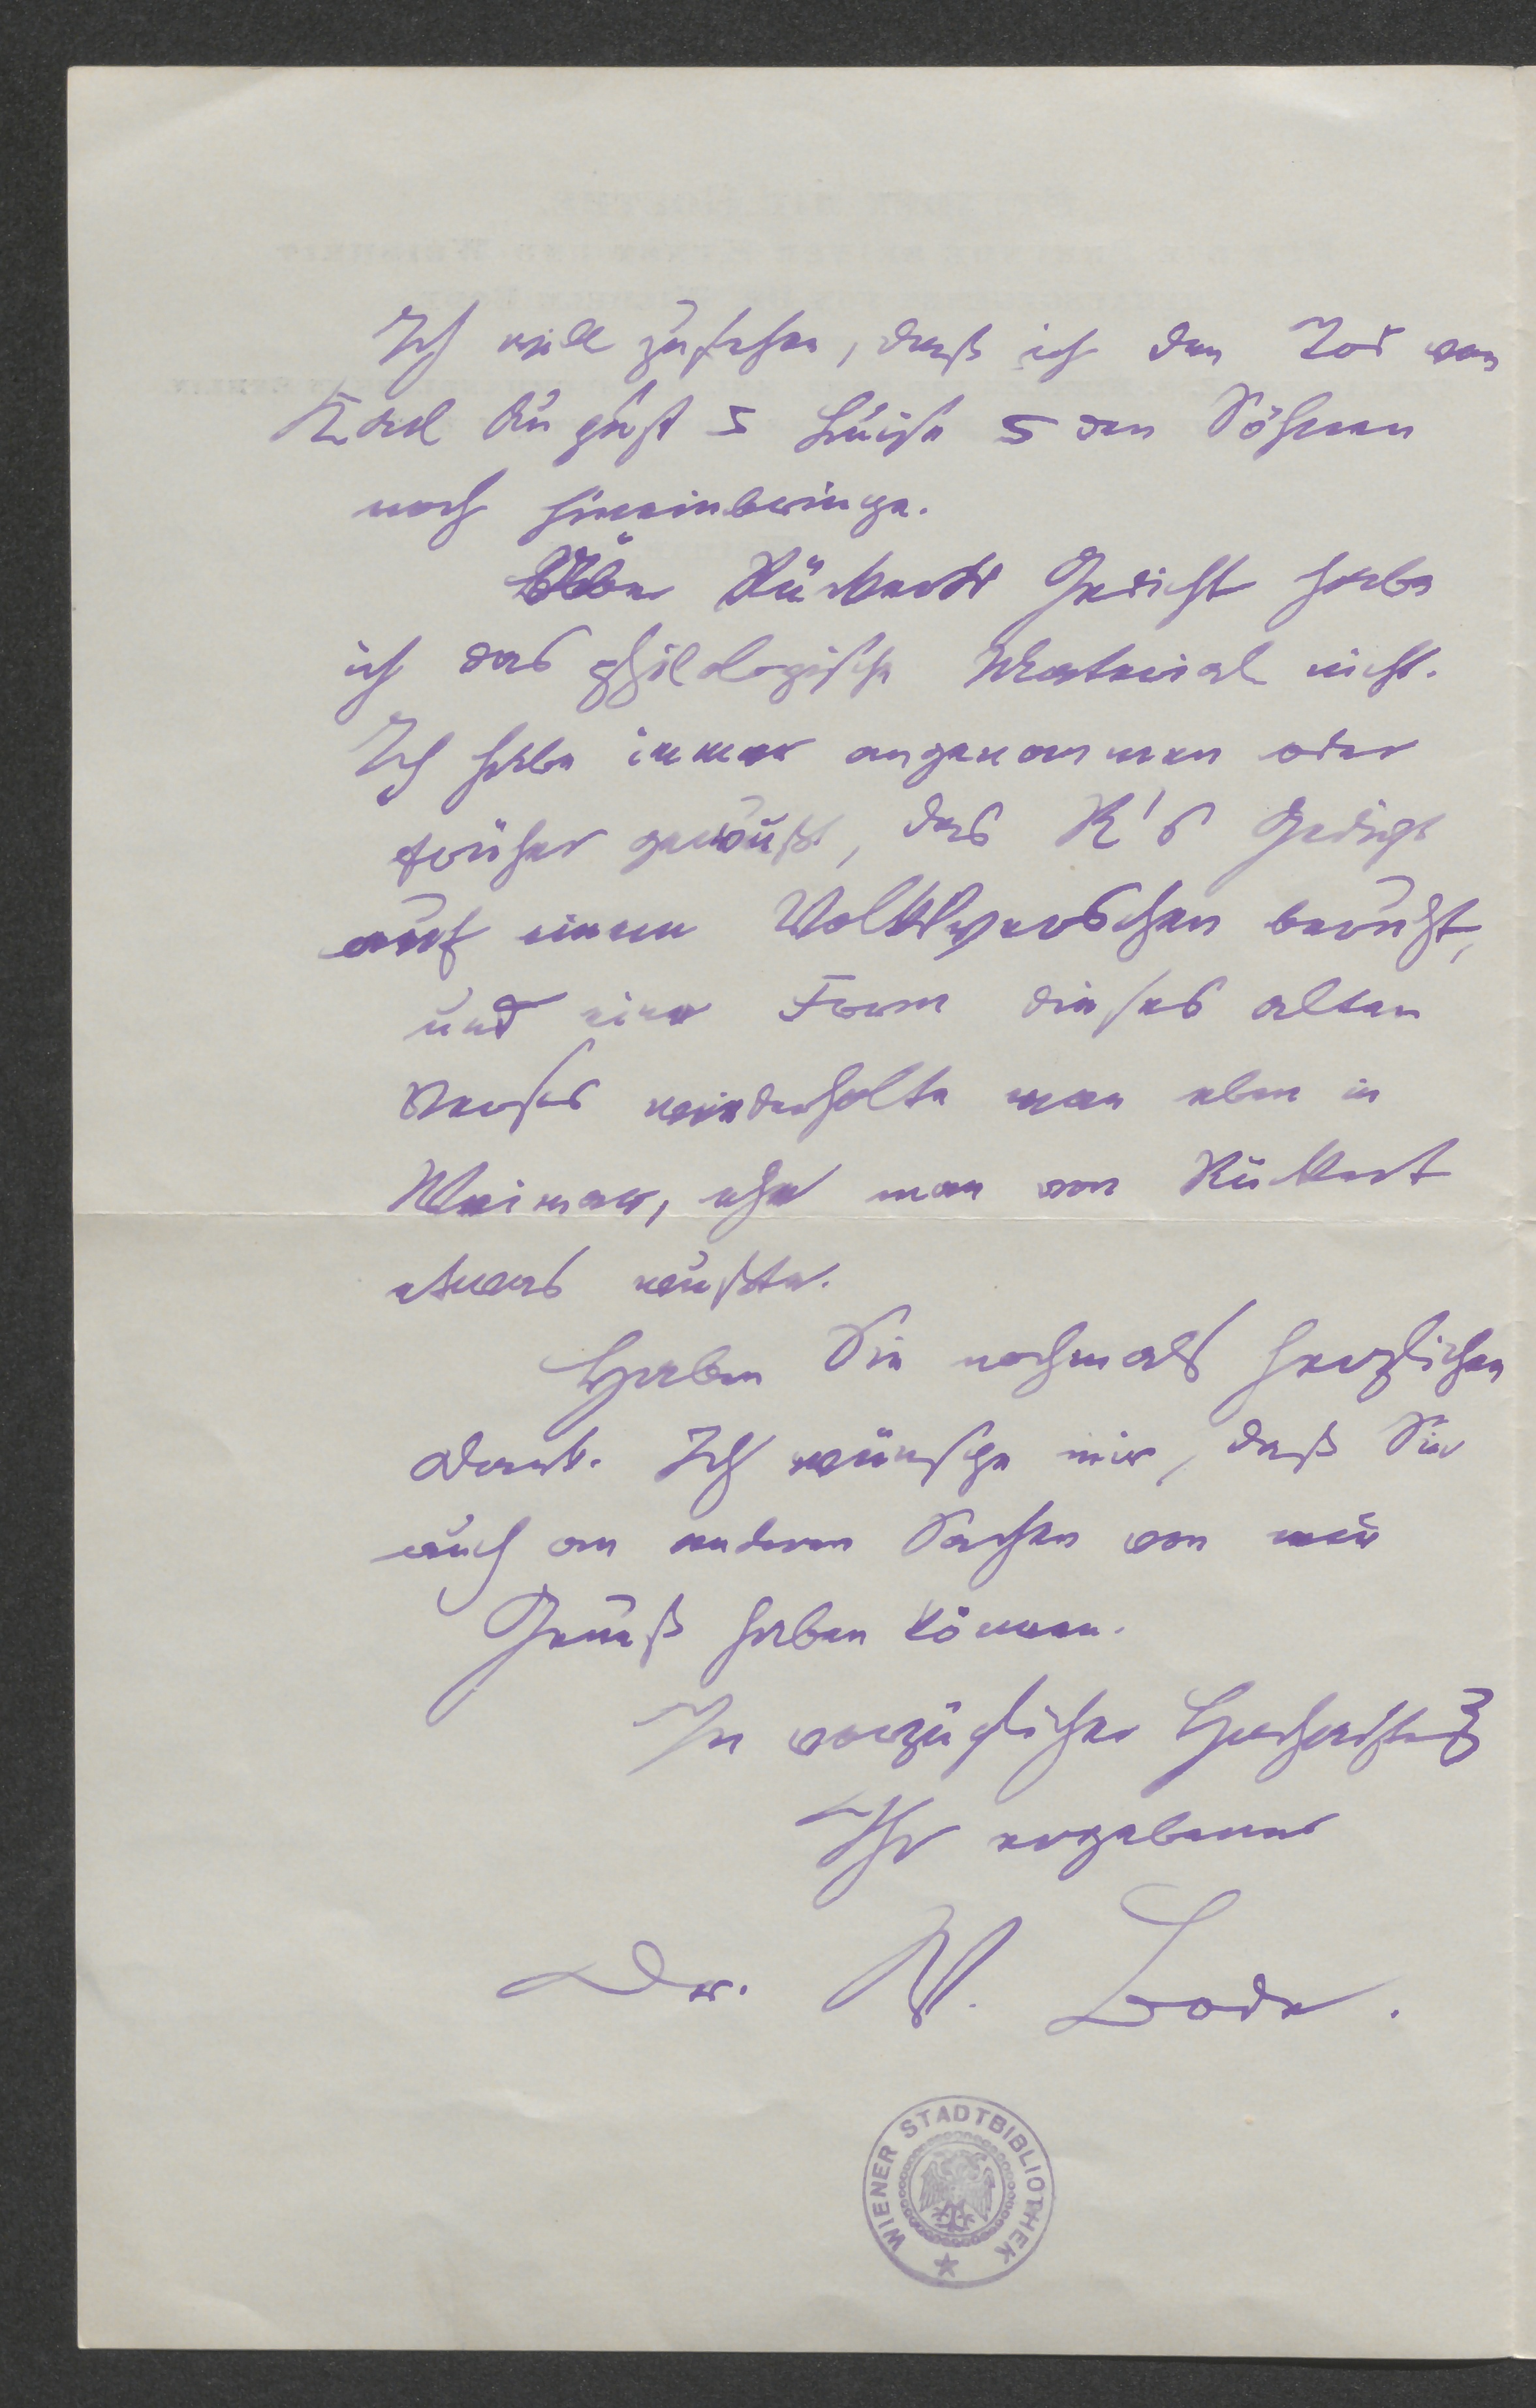 Ich will zusehen, daß ich den Tod von
Karl August u Luise u den Söhnen
noch hineinbringe.
Über Rückerts Gedicht habe
ich das philologische Material nicht.
Ich habe immer angenommen oder
früher gewußt, das R's Gedicht
auf einem Volksverschen beruht,
und eine Form dieses alten
Verses wiederholte man eben in
Weimar, ehe man von Rückert
etwas wußte.
Haben Sie nochmals herzlichen
Dank. Ich wünsche mir, daß Sie
auch an anderen Sachen von mir
Genuß haben können.
In vorzüglicher Hochachtung
Ihr ergebener
Dr. W. Bode.
WIENER STADTBIBLIOTHEK